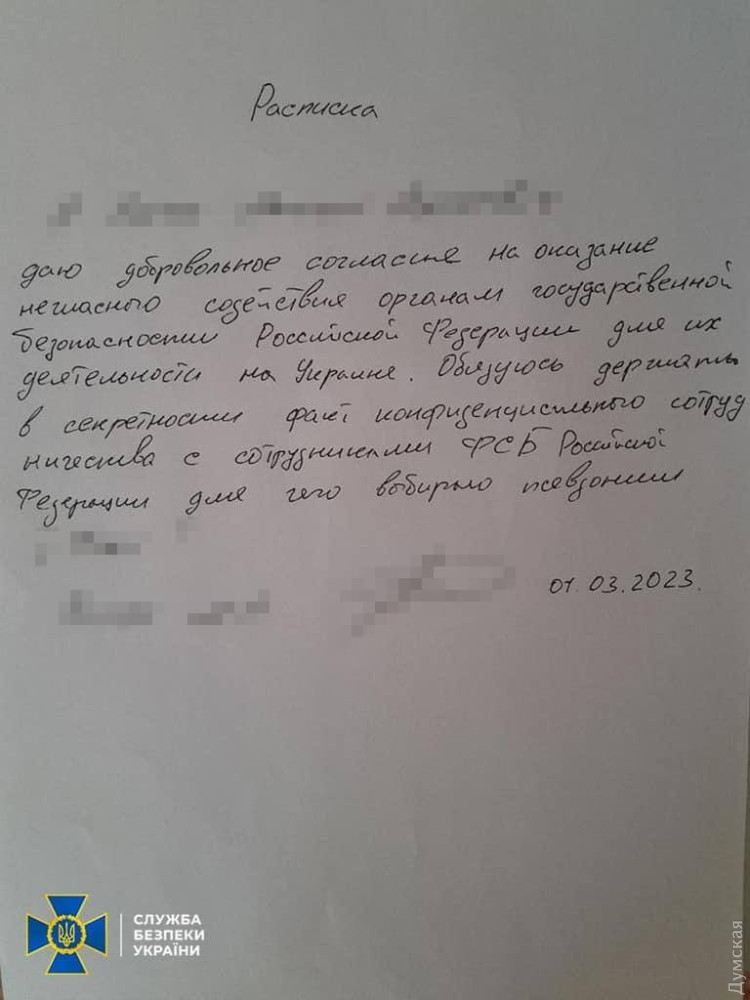 Расписка
даю добровольное согласие на оказание
негласного содействия органам государственной
безопасности Российской Федерации для их
деятельности на Украине. Обязуюсь держать
в секретности факт конфиденциального сотруд
ничества с сотрудниками ФСБ Российской
Федерации для чего выбираю псевдоним
01.03.2023.
СЛУЖБА
БЕЗПЕКИ
УКРАЇНИ
Думская